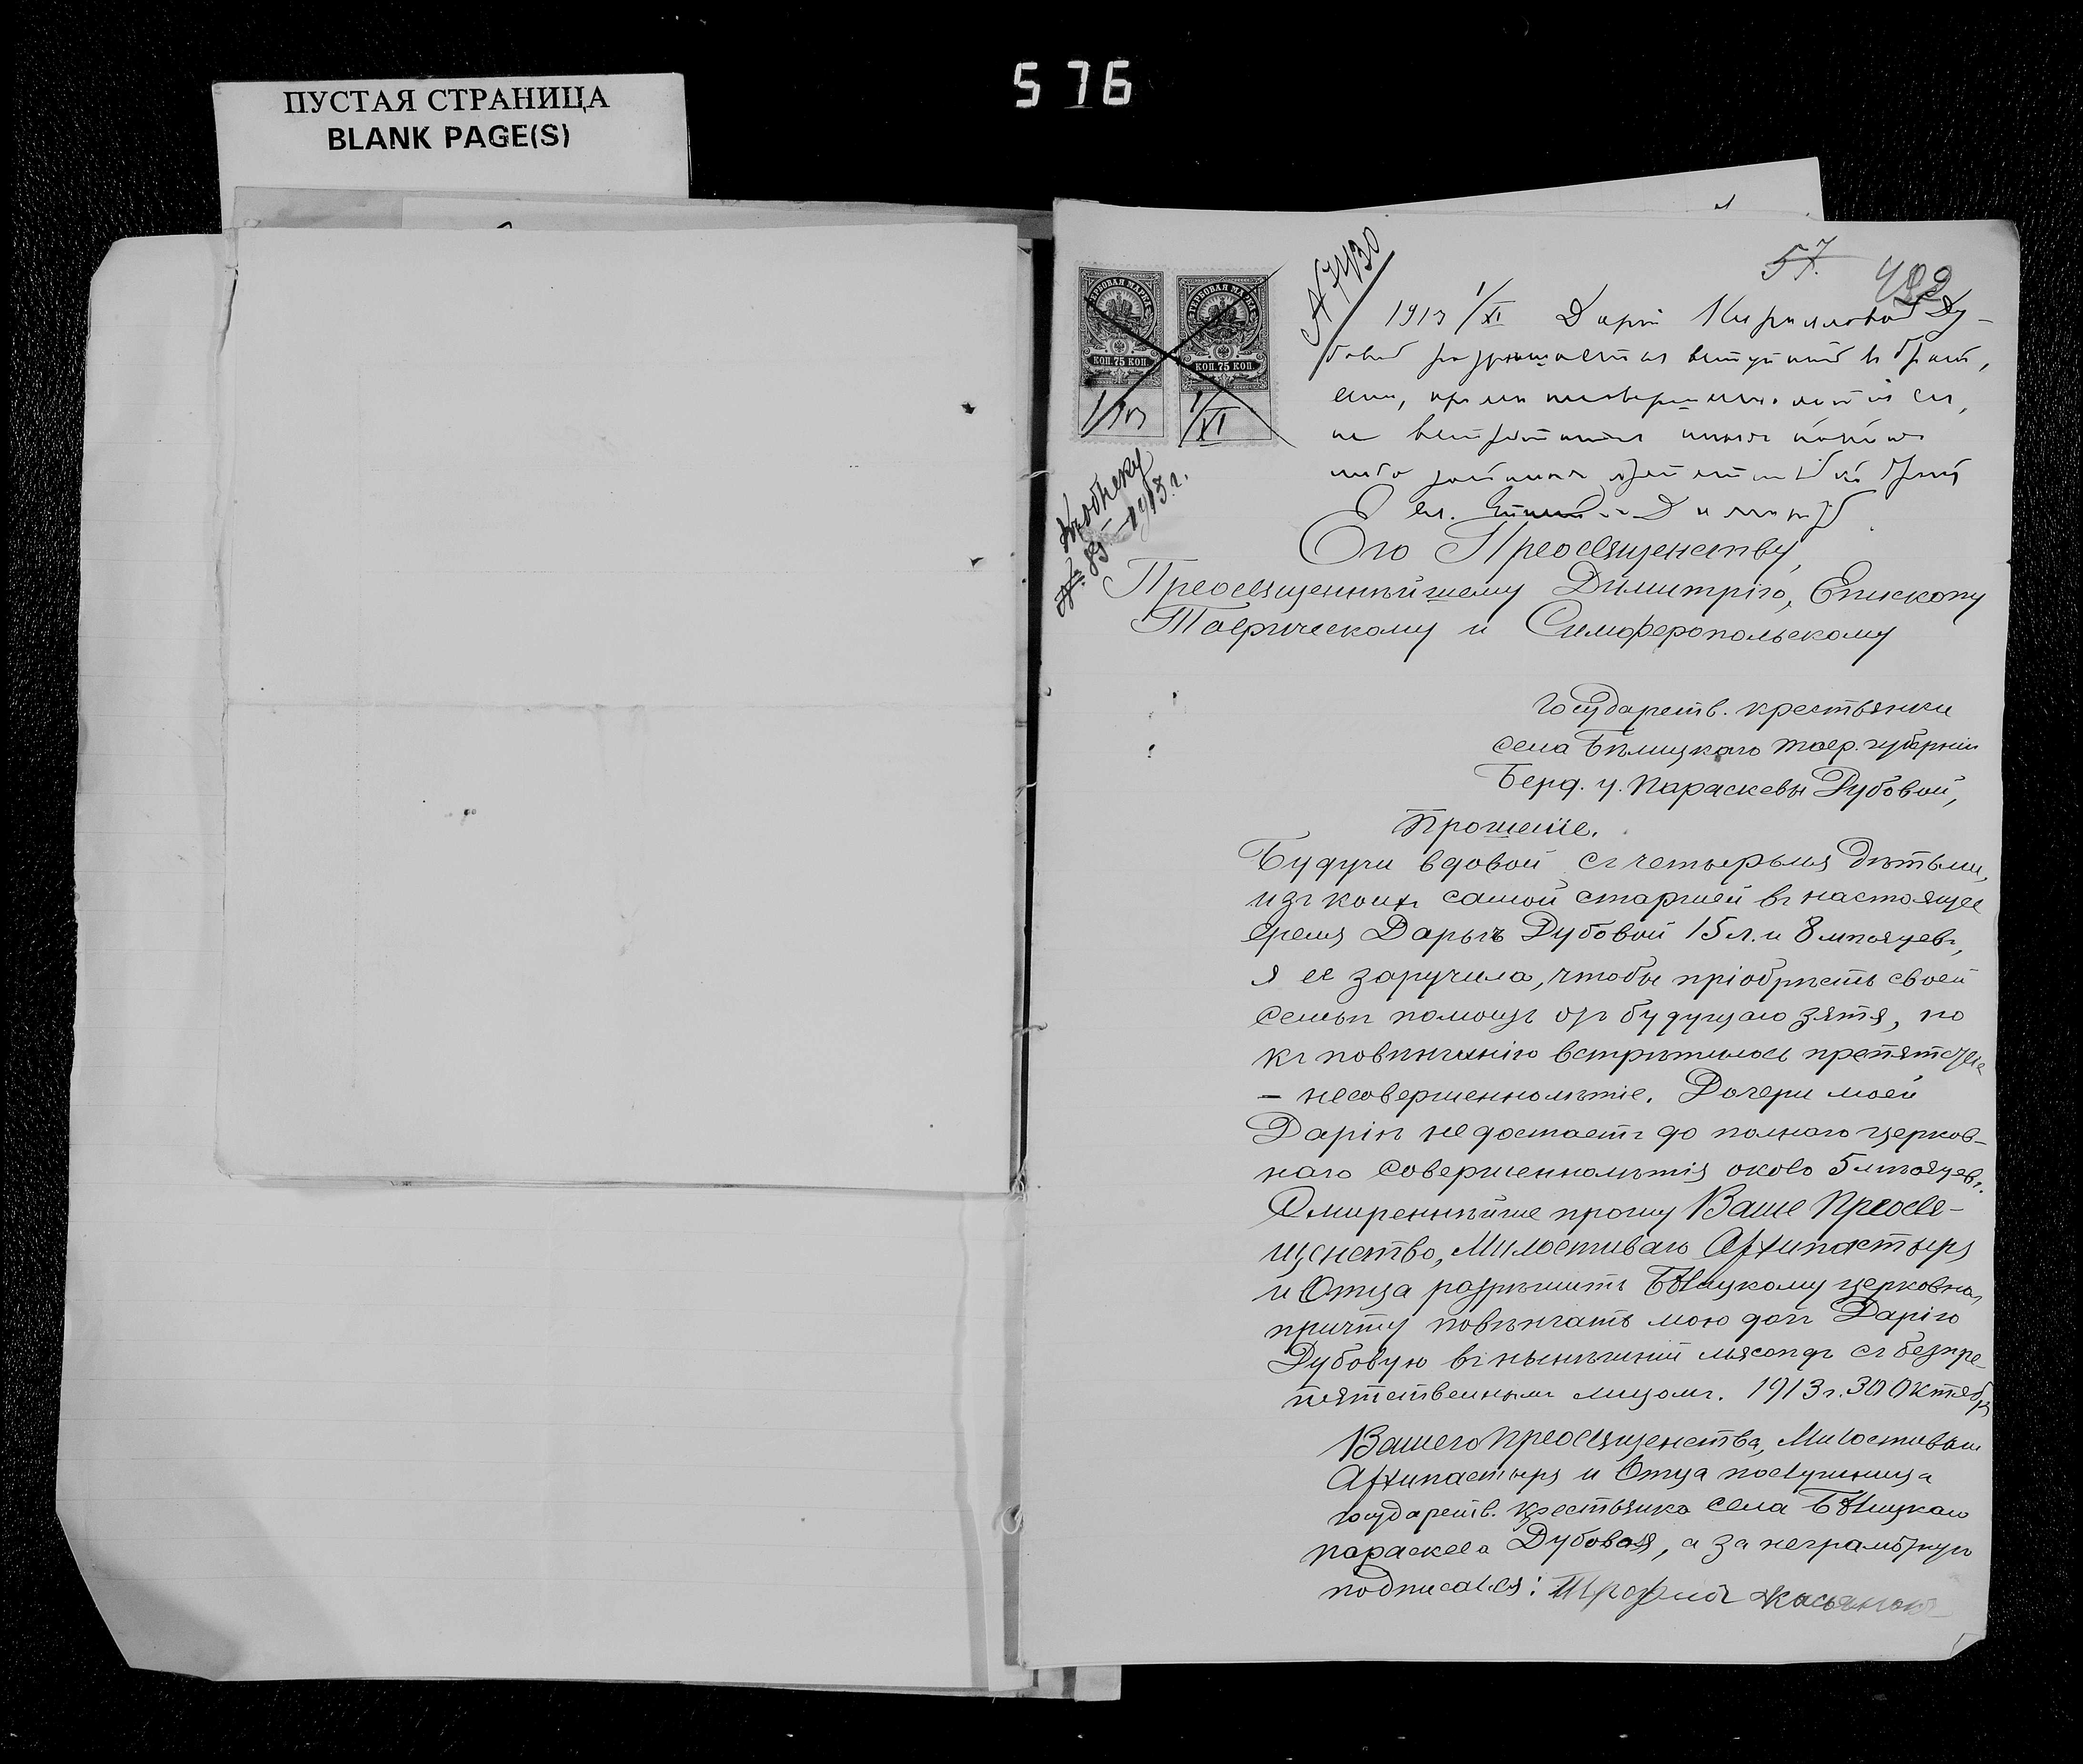 576
ПУСТАЯ СТРАНИЦА
BLANK PAGE(S)
57.
492
№ 7430
ГЕРБОВАЯ МАРКА
КОП. 75 КОП.
ГЕРБОВАЯ МАРКА
КОП. 75 КОП.
1/XI
1913 1/XI Дарiи Кирилловой Ду-
бовой разрешается вступить въ бракъ,
если, кроме несовершеннолетiя ея,
не встретится иного какого
либо законнаго препятствiя
Е еп. Димитрiй
1913 г.
Его Преосвященству,
Преосвященнѣйшему Димитрiю, Епископу
Таврическому и Симферопольскому
Государств. крестьянки
села Бѣлицкаго Тавр. губернiи
Берд. у. Параскевы Дубовой,
Прошенiе.
Будучи вдовой съ четырьмя дѣтьми,
изъ коихъ самой старшей въ настоящее
время Дарьѣ Дубовой 15 л. и 8 мѣсяцевъ,
я ее заручила, чтобы прiобрѣсть своей
семьѣ помощь отъ будущаго зятя, но
къ повѣнчанiю встрѣтилось препятствiе
- несовершеннолѣтiе. Дочери моей
Дарiи не достаетъ до полнаго церков-
наго совершеннолѣтiя около 5 мѣсяцевъ.
Смиреннѣйше прошу Ваше Преосвя-
щенство, Милостиваго Архипастыря
и Отца разрѣшить Бѣлицкому церковно
причту повѣнчать мою дочь Дарiю
Дубовую въ нынѣшнiй мясоѣдъ съ безпре-
пятственнымъ лицомъ. 1913 г. 30 Октября
Вашего Преосвященства, Милостиваго
Архипастыря и Отца послушница
государств. крестьянка села Бѣлицкаго
Параскева Дубовая, а за неграмотную
подписался: Трофимъ Касьяненко